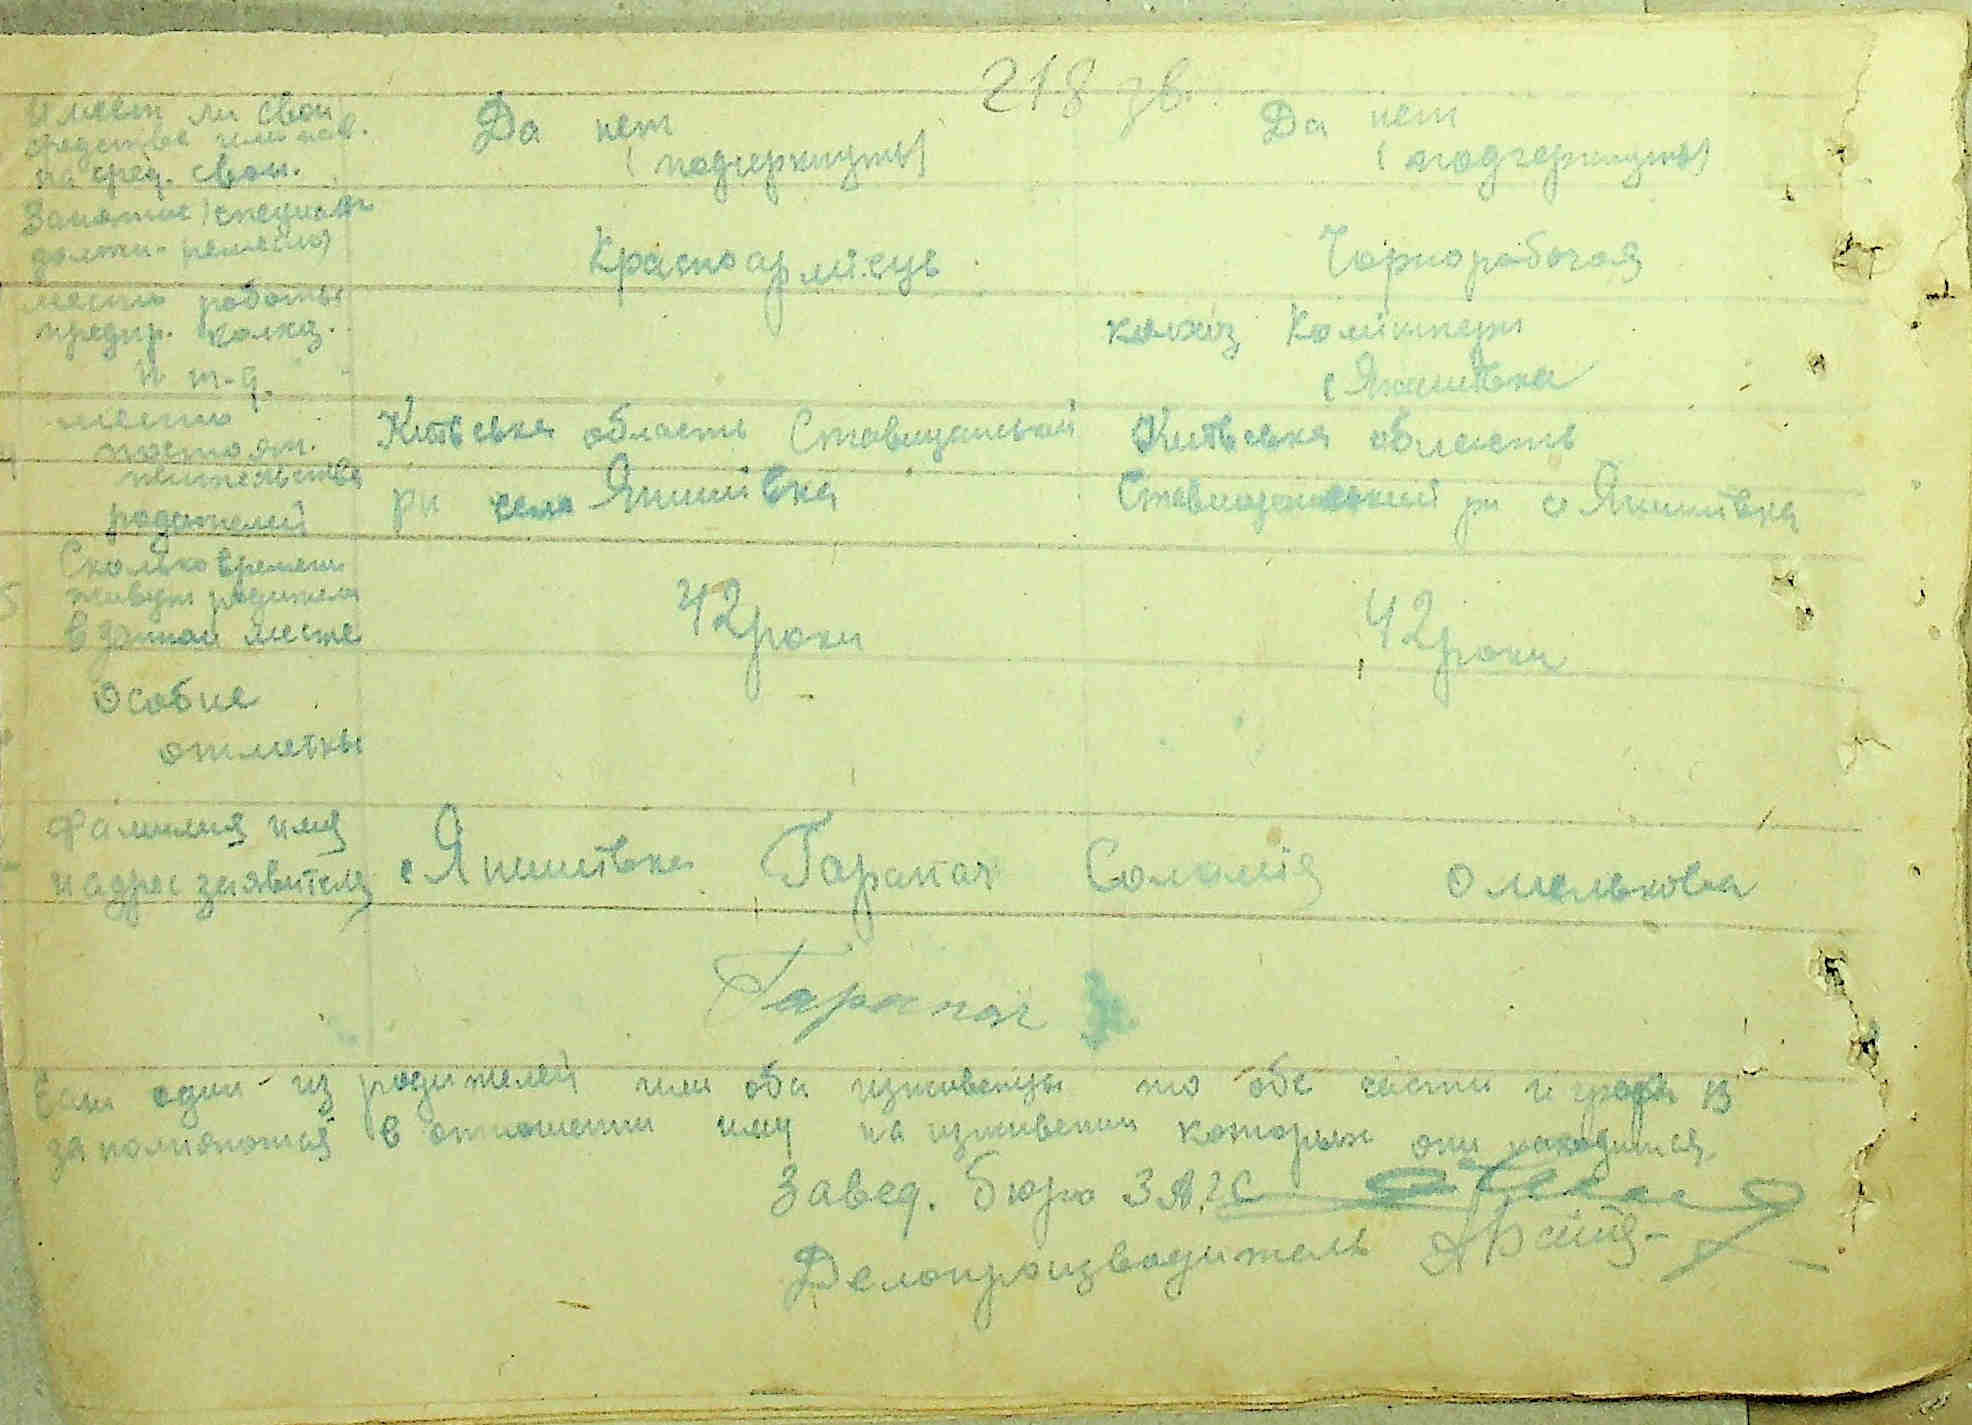 218 зв.
Имеет ли свои
средства или нах.
на сред. свои.
Да нет
(подчеркнуть)
Да нет
(подчеркнуть)
Занятие (специал
должн- ремесло)
Красноармієць
Чорнорабочая
место работы
предпр. колхз.
и т-д.
колхоз Комінтерн
с Янишівка
место
постоян.
жительства
родителей
Київська область Ставищанський
рн село Янишівка
Київська область
Ставищанський рн с Янишівка
Сколько времени
живут родители
в данном месте
42 роки
42 роки
Особие
отметкы
Фамилия имя
и адрес заявителя
с Янишівка Гарапач Соломія Омелькова
Гарапач
Если один из родителей или оба иждивенцы то обе части и графа 13
заполняются в отношении лиц на иждивении которых они находится
Завед. бюро ЗАГС
Делопроизводитель